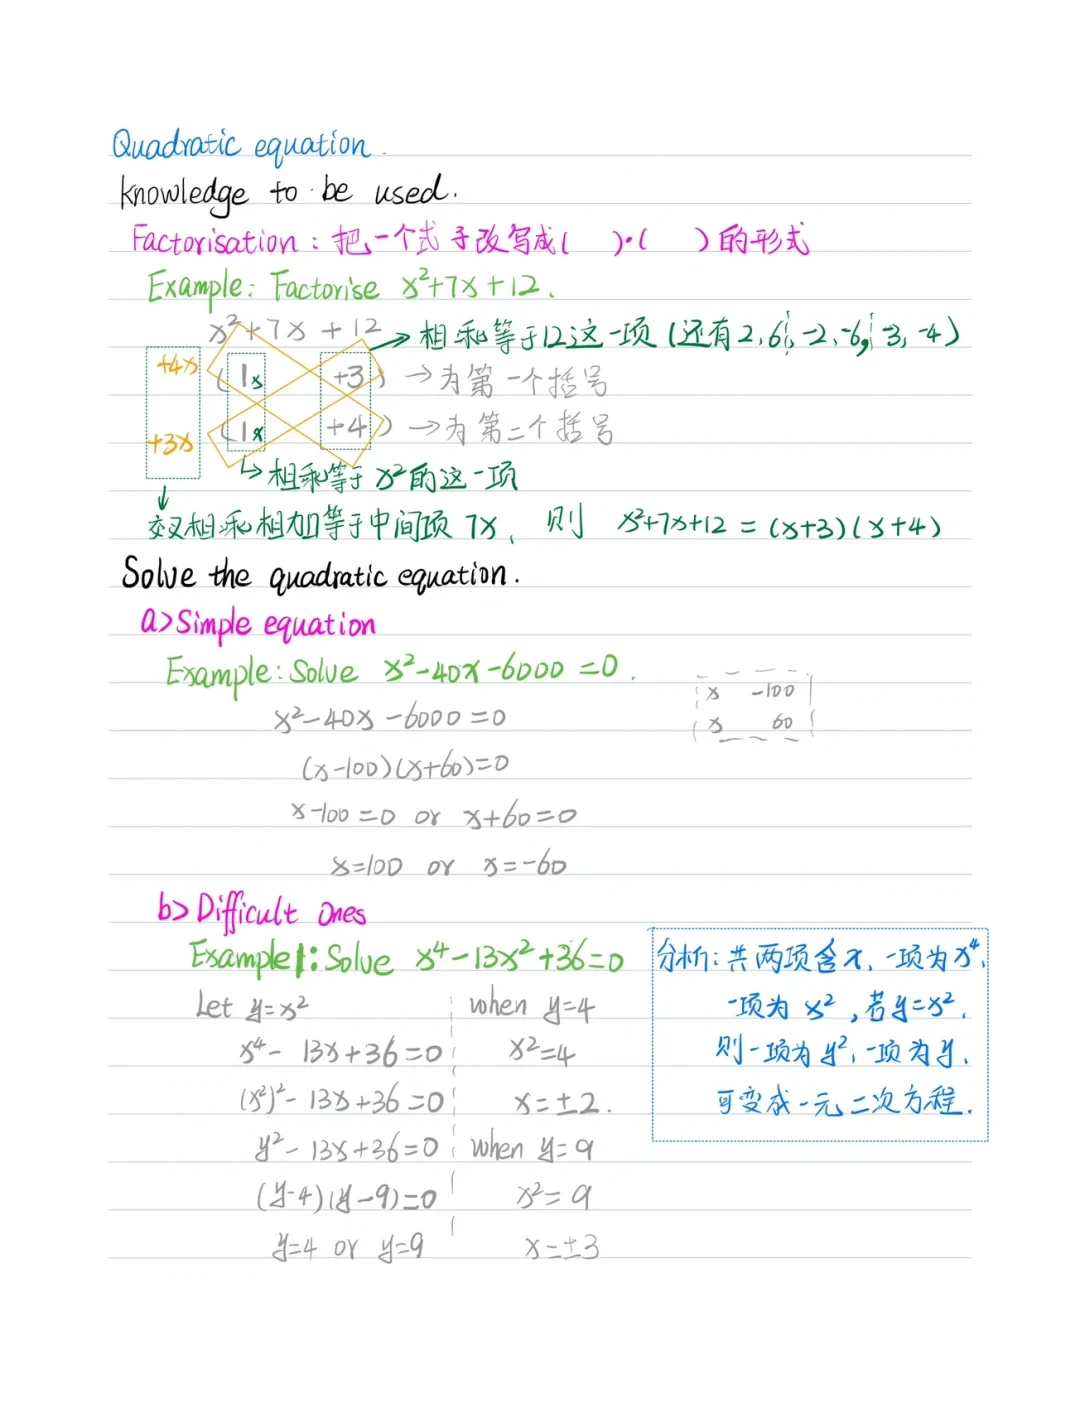 Quadratic equation.
knowledge to be used.
Factorisation: 把一个式子改写成( )·( )的形式
Example: Factorise x²+7x+12.
x²+7x+12
→相乘等于12这一项(还有2,6; -2,-6; -3,-4)
+4x (1x +3) →为第一个括号
+3x (1x +4) →为第二个括号
↳相乘等于x²的这一项
↓
交叉相乘相加等于中间项7x, 则 x²+7x+12=(x+3)(x+4)
Solve the quadratic equation.
a>Simple equation
Example: Solve x²-40x-6000=0.
x -100
x 60
x²-40x-6000=0
(x-100)(x+60)=0
x-100=0 or x+60=0
x=100 or x=-60
b>Difficult Ones
Example1: Solve x⁴-13x²+36=0
Let y=x²
x⁴- 13x+36=0
(x²)²- 13x+36=0
y²- 13x+36=0
(y-4)(y-9)=0
y=4 or y=9
when y=4
x²=4
x=±2.
when y=9
x²=9
x=±3
分析:共两项含x,一项为x⁴,
一项为x²,若y=x²,
则一项为y²,一项为y,
可变成一元二次方程.